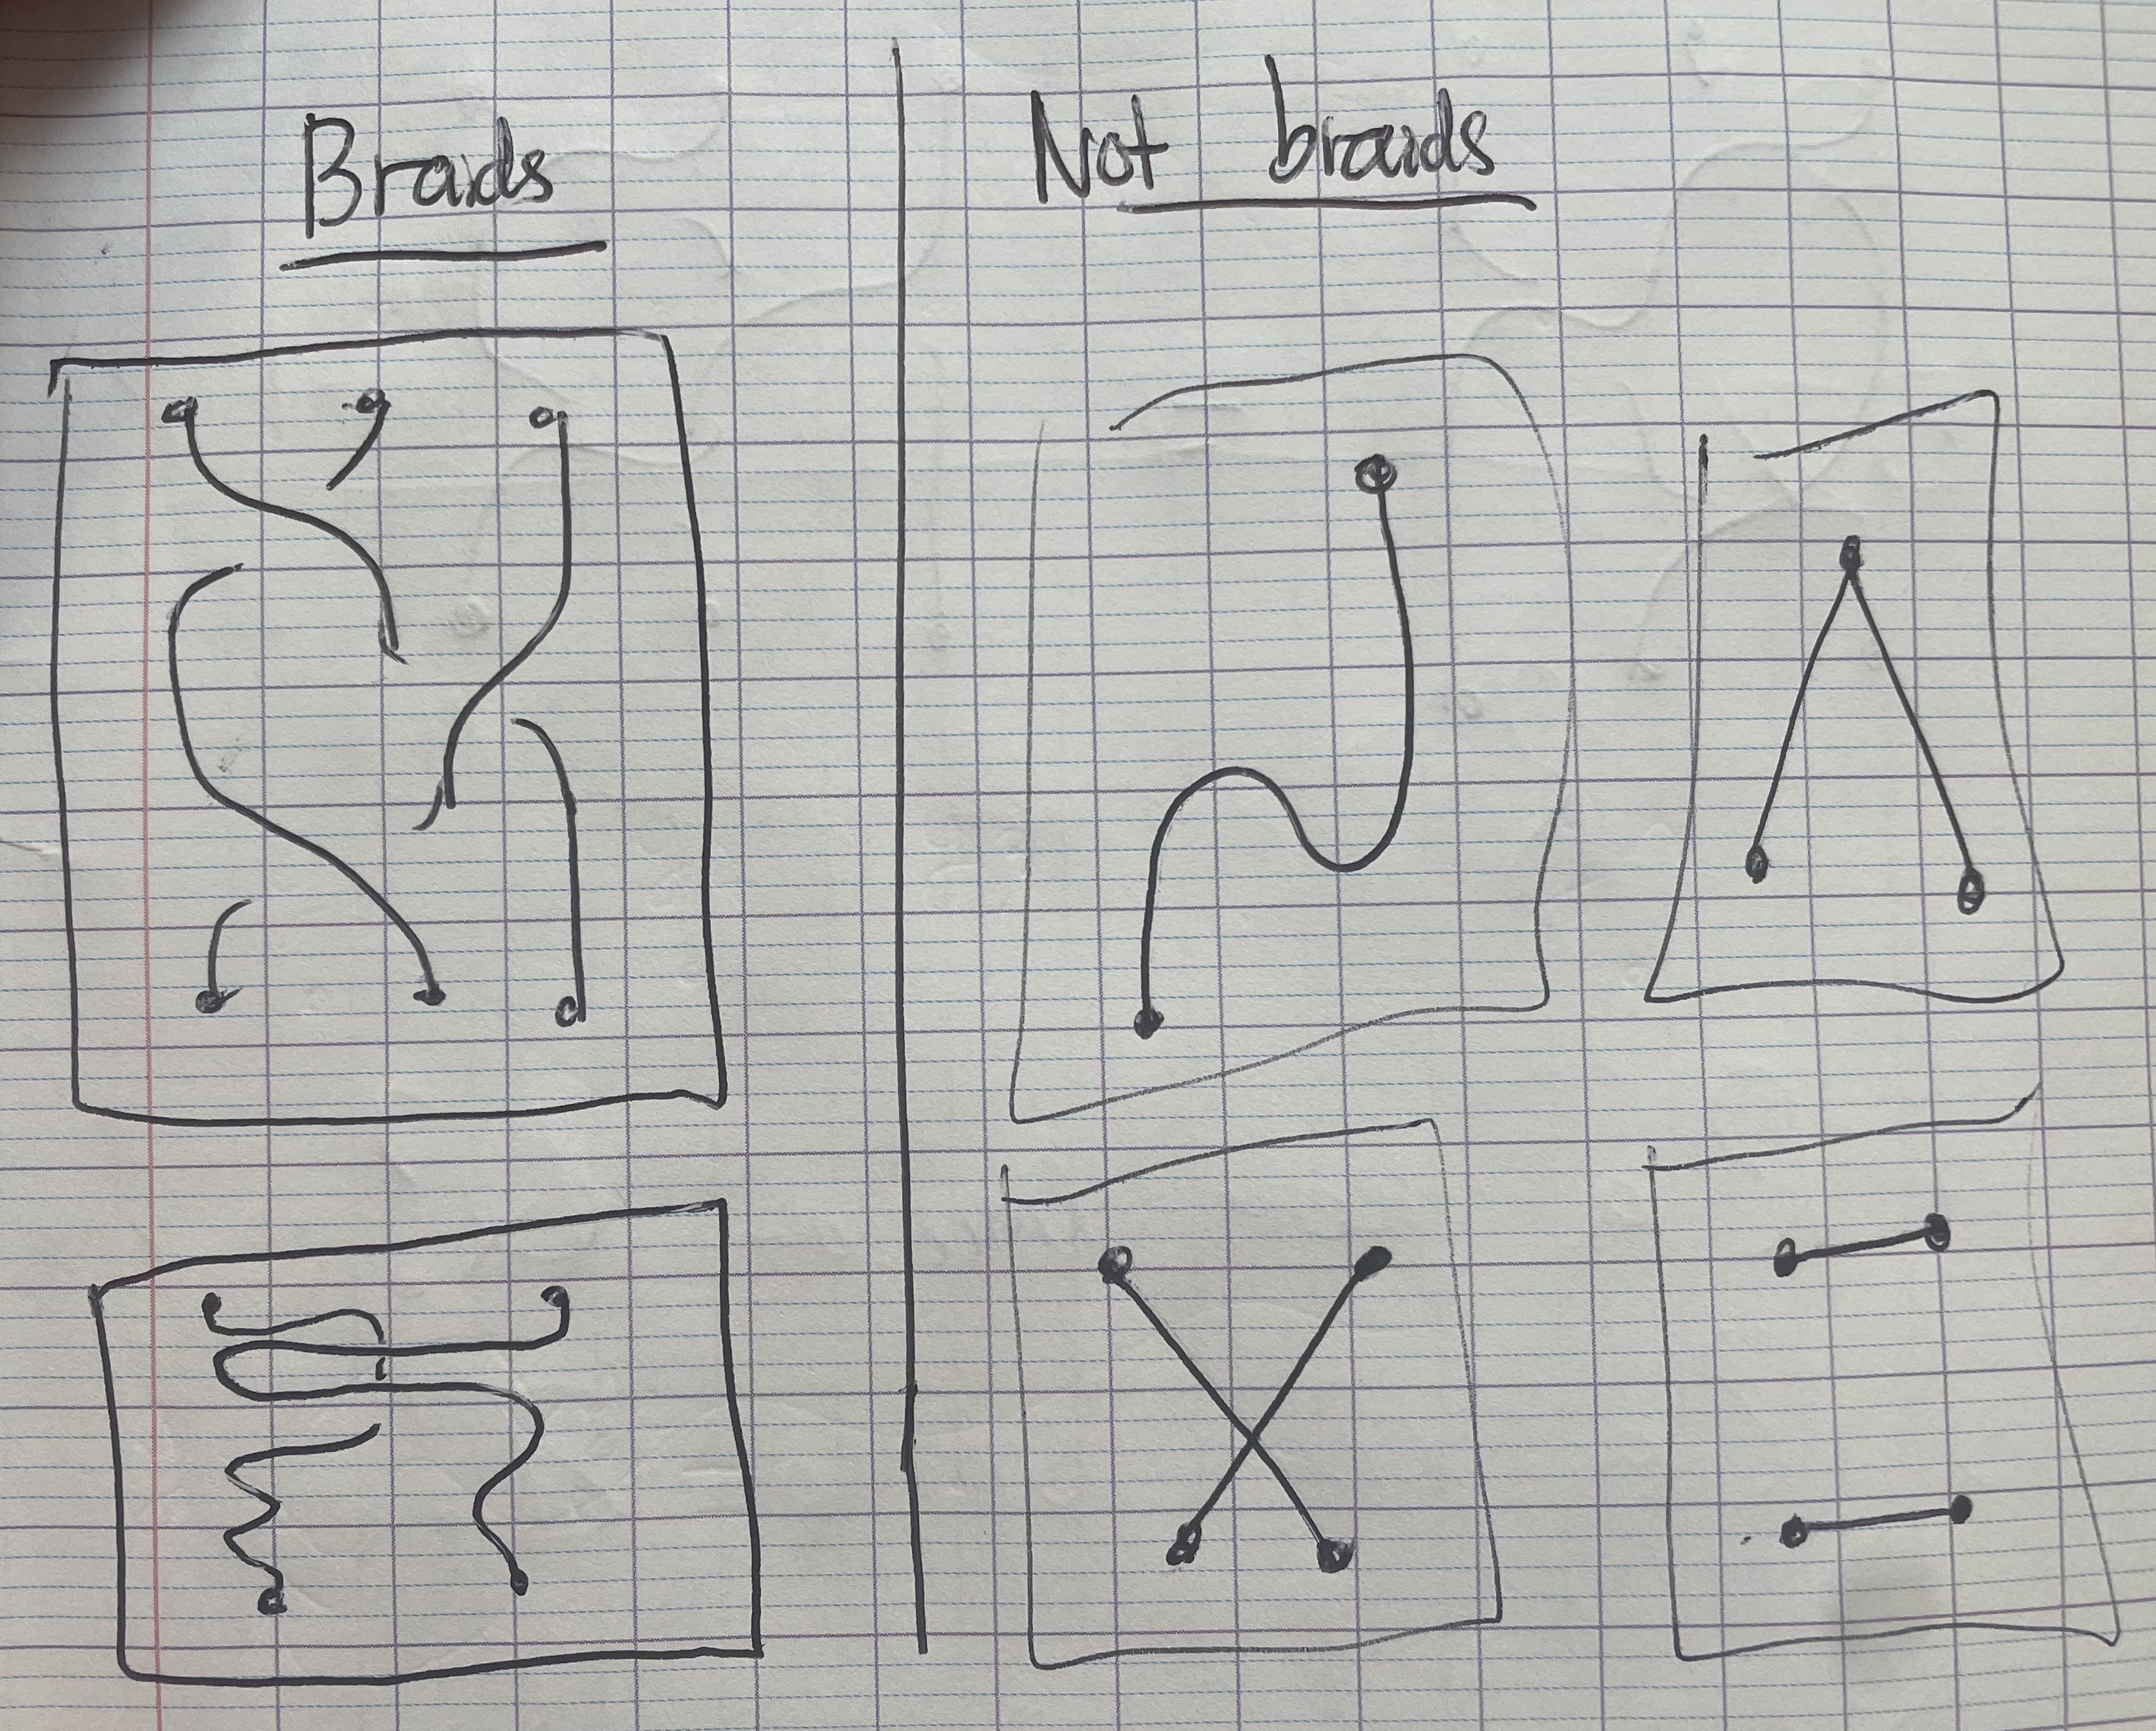 Braids
Not braids